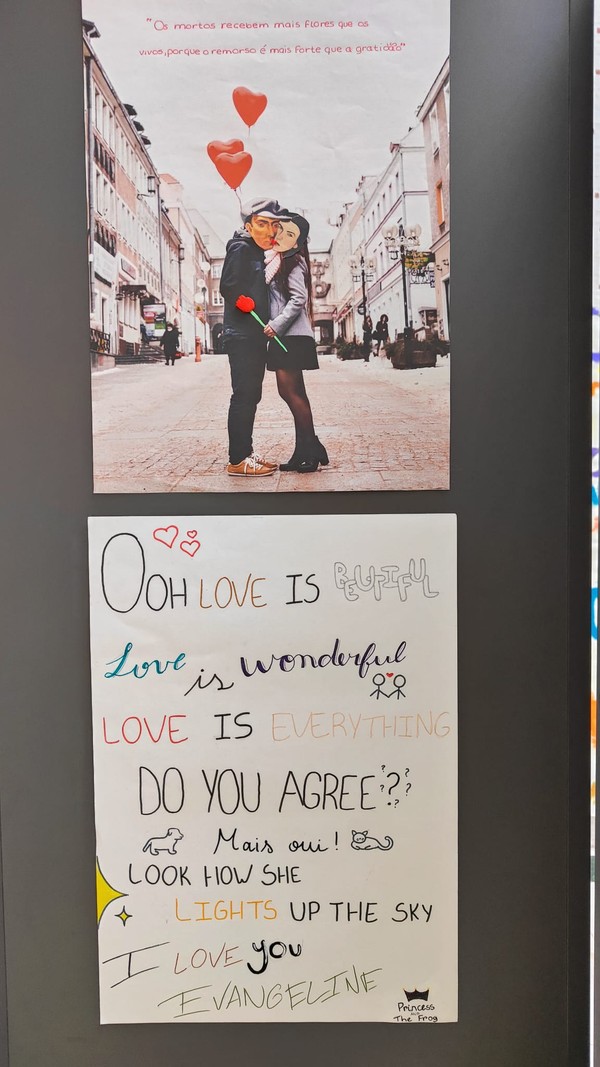 "Os mortos recebem mais flores que os
vivos, porque o remorso é mais forte que a gratidão"
OOH LOVE IS BEUTIFUL
Love is wonderful
LOVE IS EVERYTHING
DO YOU AGREE???
Mais oui!
LOOK HOW SHE
LIGHTS UP THE SKY
I LOVE you
EVANGELINE
Princess
The Frog